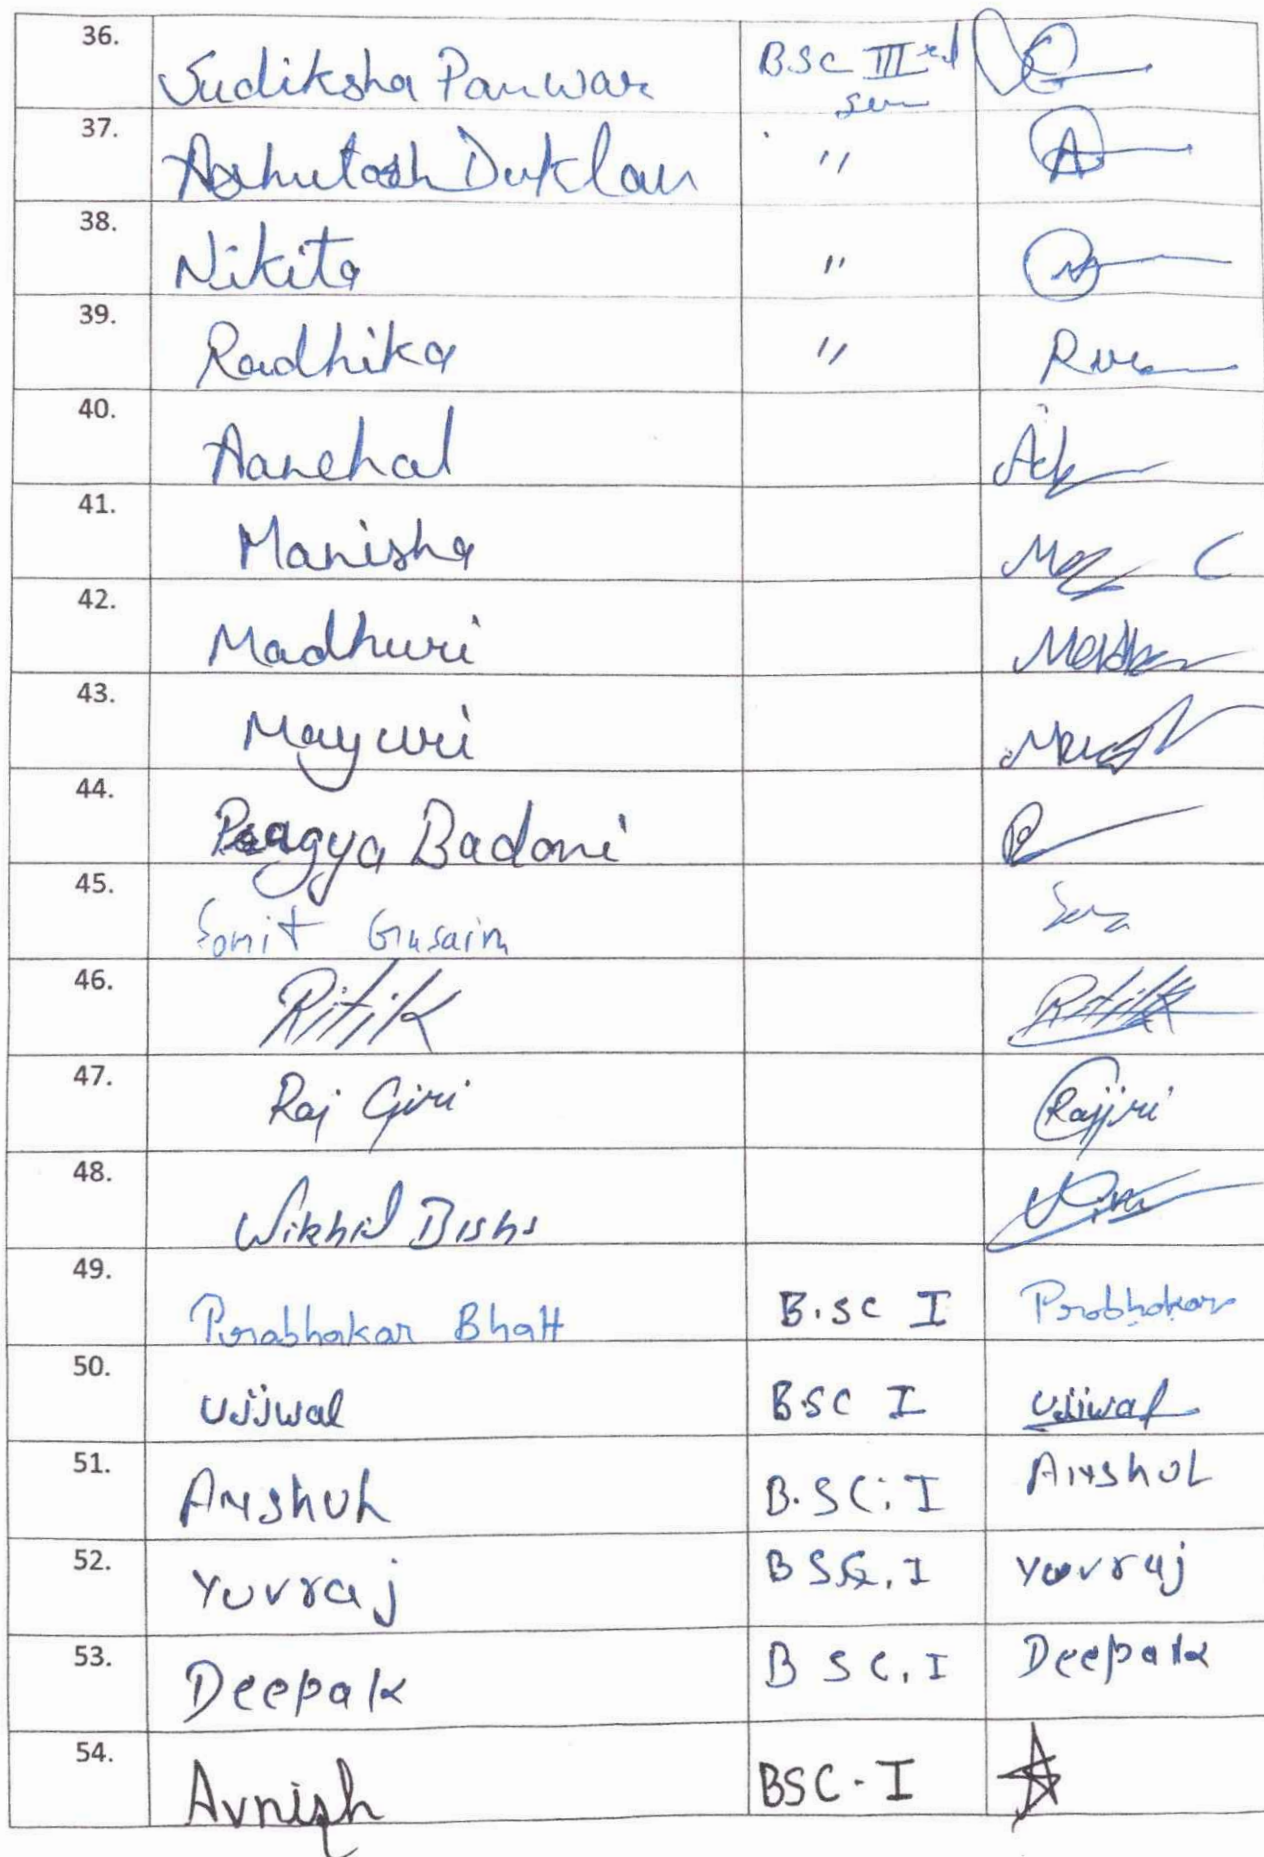 36. Sudiksha Panwar BSC III rd
sem
37. Ashutosh Duklan "
38. Nikita "
39. Radhika "
40. Aanchal
41. Manisha
42. Madhuri
43. Mayuri
44. Pragya Badoni
45. Somit Gusain
46. Ritik Ritik
47. Raj Giri Rajgiri
48. Nikhil
49. Prabhakar Bhatt B.SC I Prabhakar
50. Ujjwal B.SC I Ujjwal
51. Anshul B.SC. I Anshul
52. Yuvraj BSC. I Yuvraj
53. Deepak B SC. I Deepak
54. Avnish BSC - I